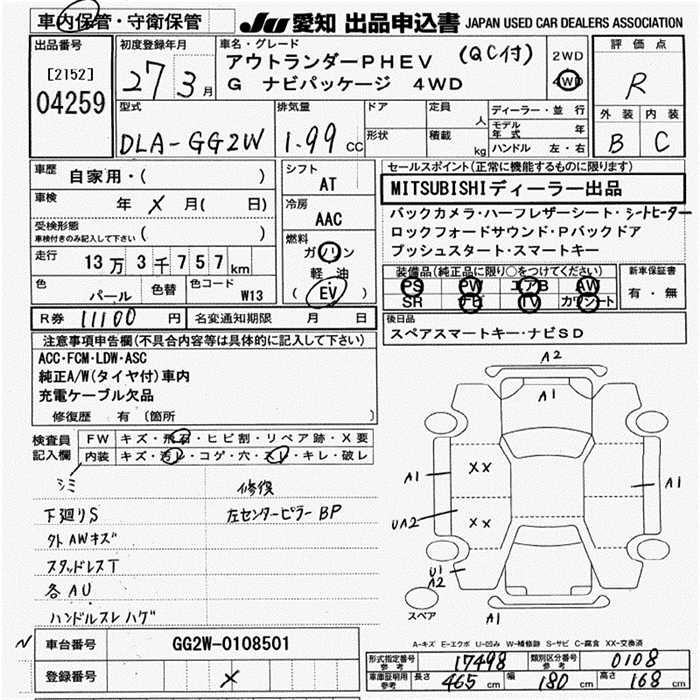 車内保管・守衛保管
JU 愛知 出品申込書 JAPAN USED CAR DEALERS ASSOCIATION
出品番号
[2152]
04259
初度登録年月
27 3月
車名・グレード
アウトランダーPHEV (QC付)
G ナビパッケージ 4WD
2WD
4WD
評価点
R
外装 内装
B C
型式
DLA-GG2W
排気量
1.99 CC
ドア
形状
定員 人
積載 kg
ディーラー・並行
モデル年式 年
ハンドル 左・右
車歴
自家用・( )
車検
年 × 月( 日)
受検形態
車検付きのみ記入して下さい ( )
走行
13万3千757km
色 パール
色替
色コード W13
シフト
AT
冷房
AAC
燃料
ガソリン
軽油
( EV )
セールスポイント(正常に機能するものに限ります)
MITSUBISHIディーラー出品
バックカメラ・ハーフレザーシート・シートヒーター
ロックフォードサウンド・Pバックドア
プッシュスタート・スマートキー
装備品(純正品に限り○をつけてください)
PS PW エアB AW
SR ナビ TV カワシート
新車保証書
有・無
R券 11100 円 名変通知期限 月 日
後日品
スペアスマートキー・ナビSD
注意事項申告欄(不具合内容等は具体的に記入して下さい)
ACC・FCM・LDW・ASC
純正A/W(タイヤ付)車内
充電ケーブル欠品
修復歴 有 〔箇所 〕
検査員
記入欄
FW キズ・飛石・ヒビ割・リペア跡・X要
内装 キズ・汚レ・コゲ・穴・スレ・キレ・破レ
シミ 修復
下廻りS 左センターピラー BP
外AWキズ
スタッドレスT
各AU
ハンドルスレハゲ
A2
A1
A1
XX
A1
UA2
XX
U1
A2
スペア
A1
A-キズ E-エクボ U-凹み W-補修跡 S-サビ C-腐食 XX-交換済
N 車台番号 GG2W-0108501
登録番号 ×
形式指定番号 参考 17498 類別区分番号 参考 0108
車庫証明用 参考 長さ 465 cm 幅 180 cm 高さ 168 cm